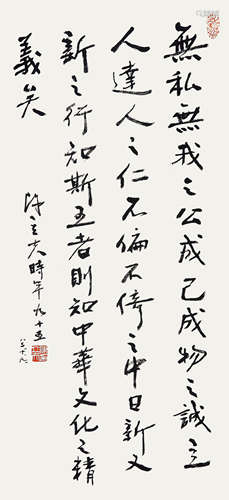 無私無我之公成己成物之誠立
人達人之仁不偏不倚之中日新又
新之行知斯五者則知中華文化之精
義矣
陳立夫時年九十五